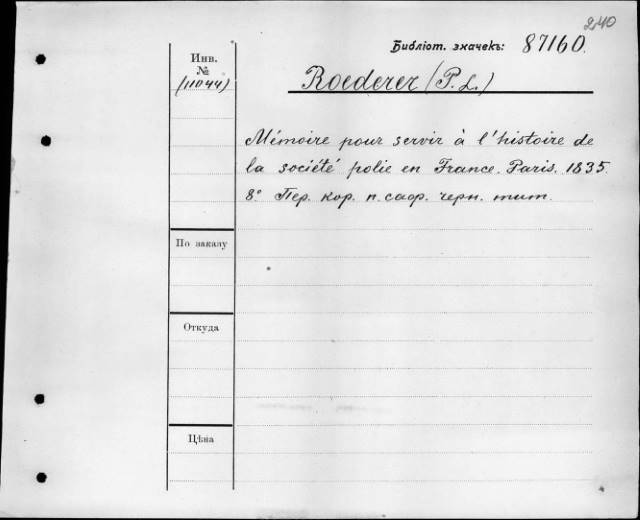 2,40
Библіот. значекъ: 87160.
Инв.
№
(11044)
Roederer (P. L.)
Mémoire pour servir à l'histoire de
la société polie en France. Paris. 1835.
8° Пер. кор. п. сафр. черн. тит.
По заказу
Откуда
Цѣна